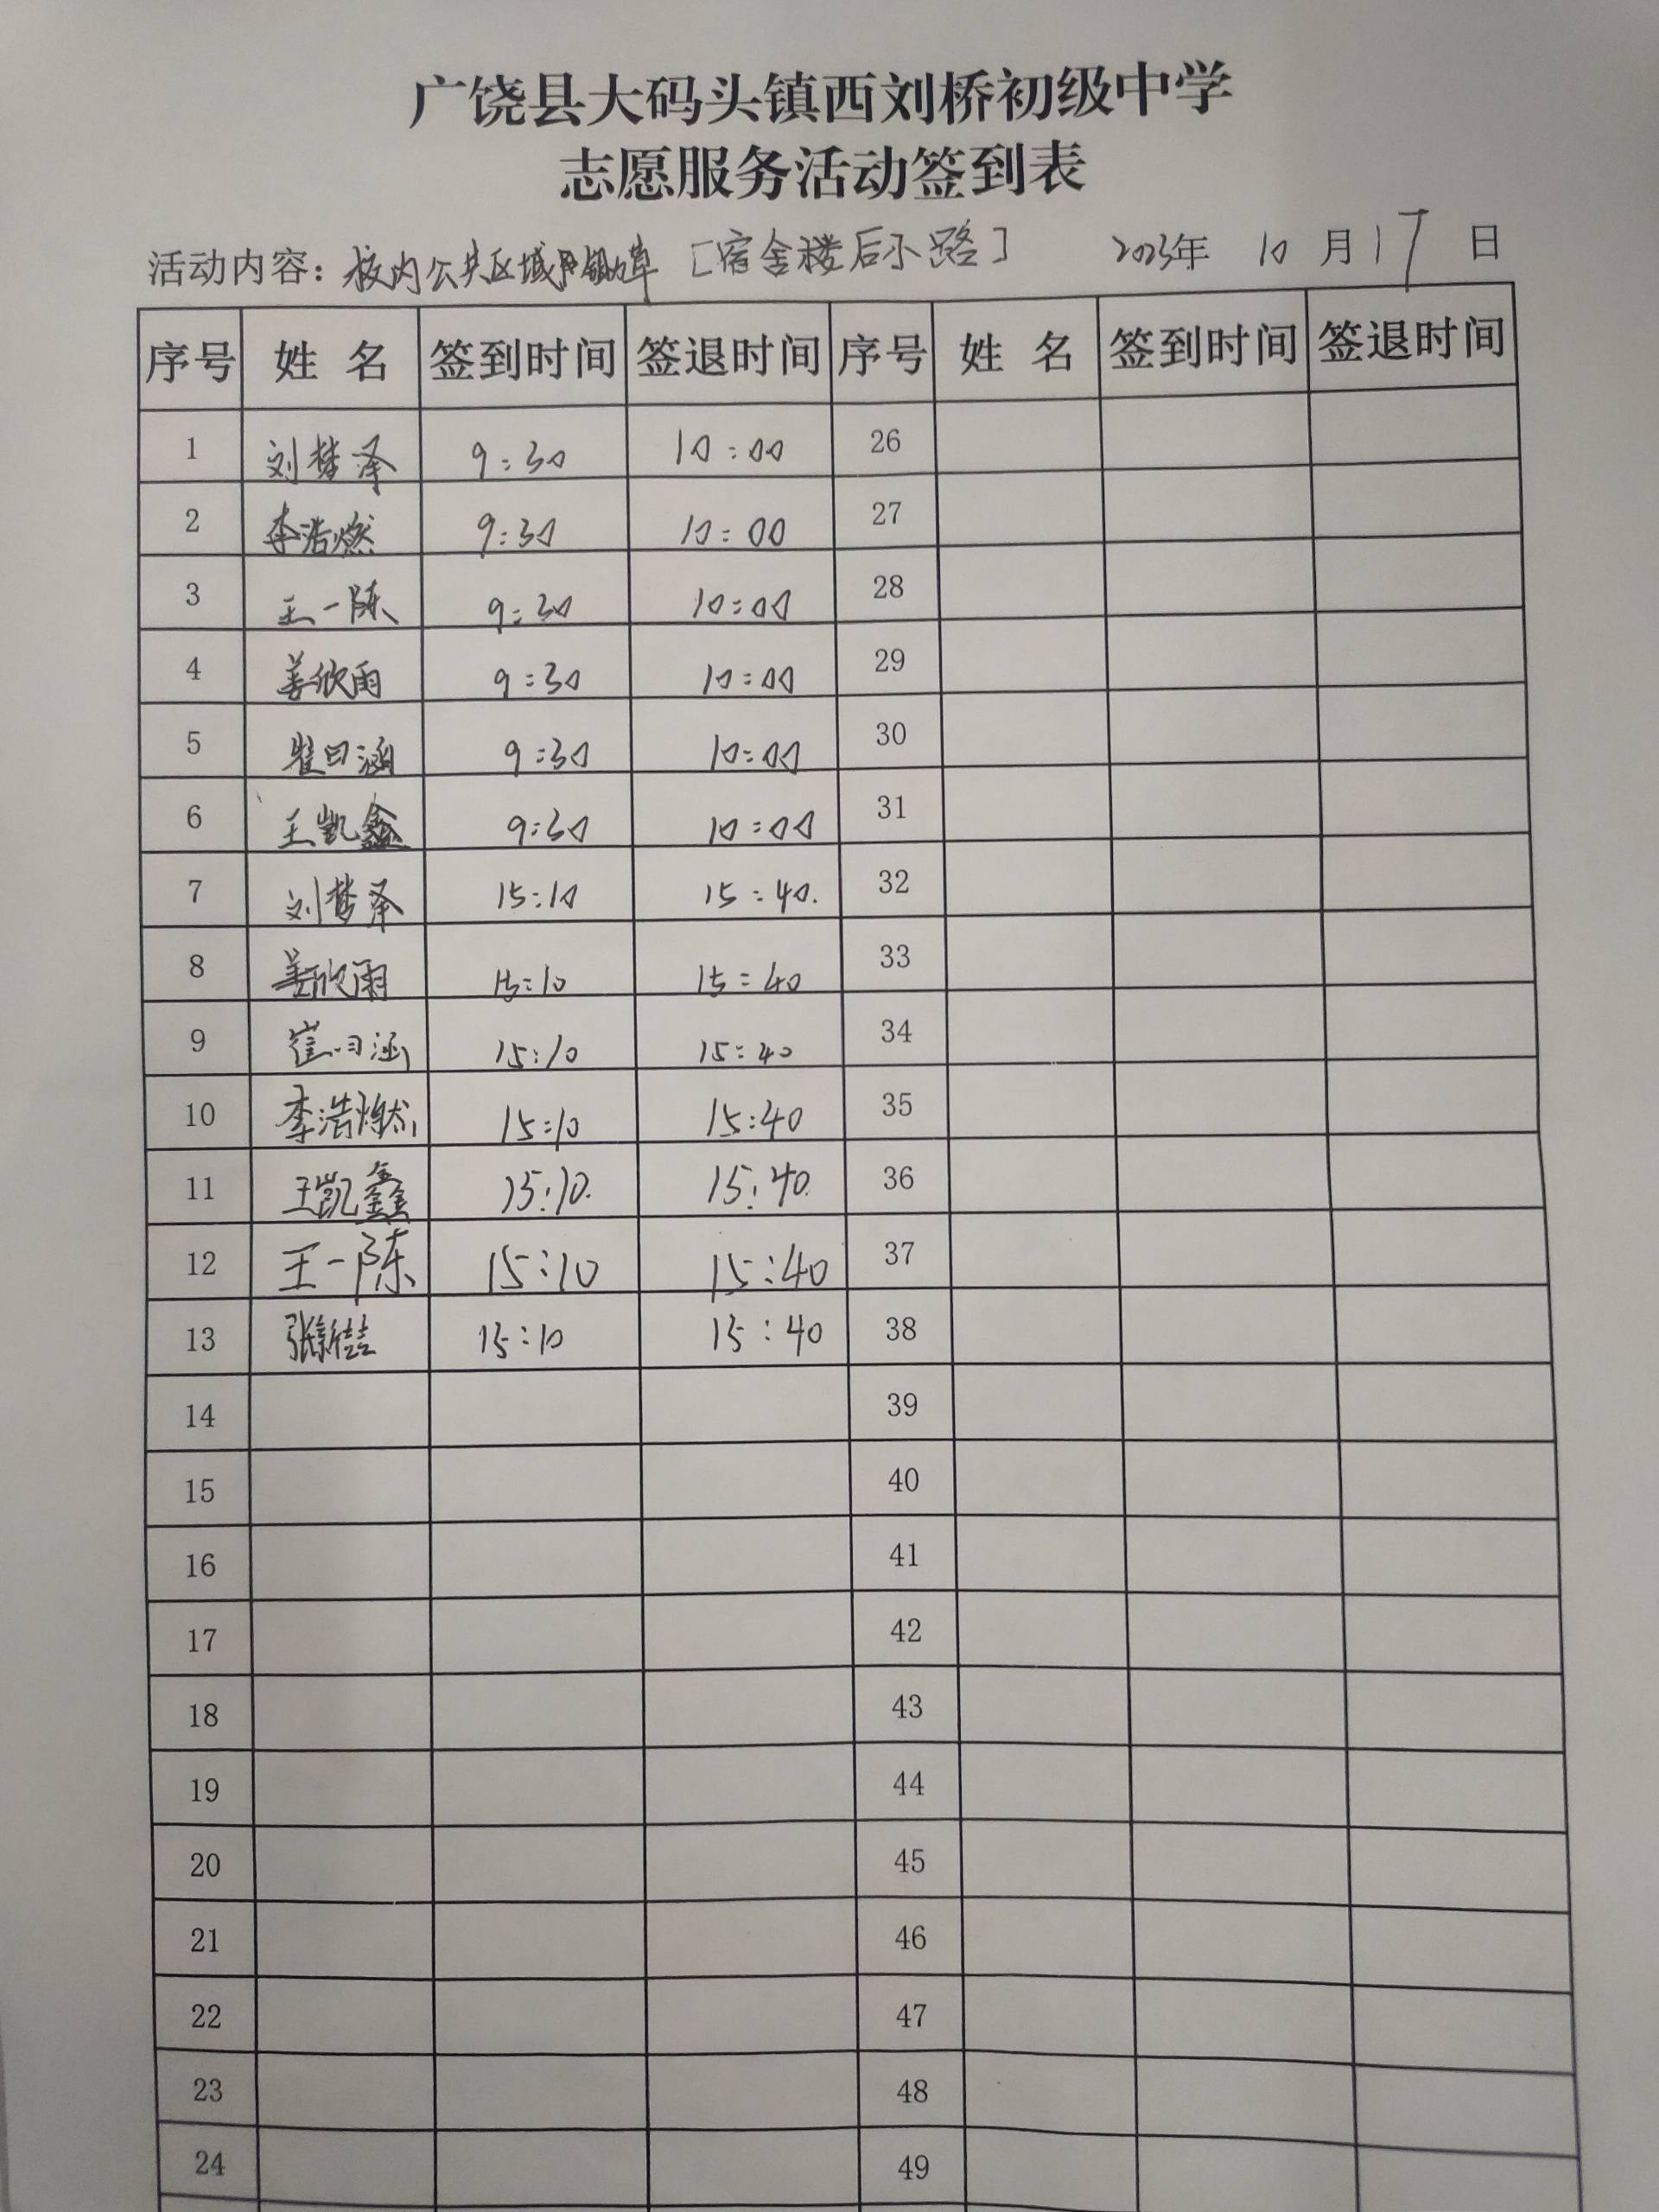 广饶县大码头镇西刘桥初级中学
志愿服务活动签到表
活动内容：校内公共区域 锄草 [宿舍楼后小路] 2023年 10 月 17 日
序号 姓 名 签到时间 签退时间 序号 姓 名 签到时间 签退时间
1 刘梦泽 9:30 10:00 26
2 李浩燃 9:30 10:00 27
3 王一陈 9:30 10:00 28
4 姜欣雨 9:30 10:00 29
5 崔曰涵 9:30 10:00 30
6 王凯鑫 9:30 10:00 31
7 刘梦泽 15:10 15:40. 32
8 姜欣雨 15:10 15:40 33
9 崔曰涵 15:10 15:40 34
10 李浩燃 15:10 15:40 35
11 王凯鑫 15:10. 15:40. 36
12 王一陈 15:10 15:40 37
13 张新喆 15:10 15:40 38
14 39
15 40
16 41
17 42
18 43
19 44
20 45
21 46
22 47
23 48
24 49